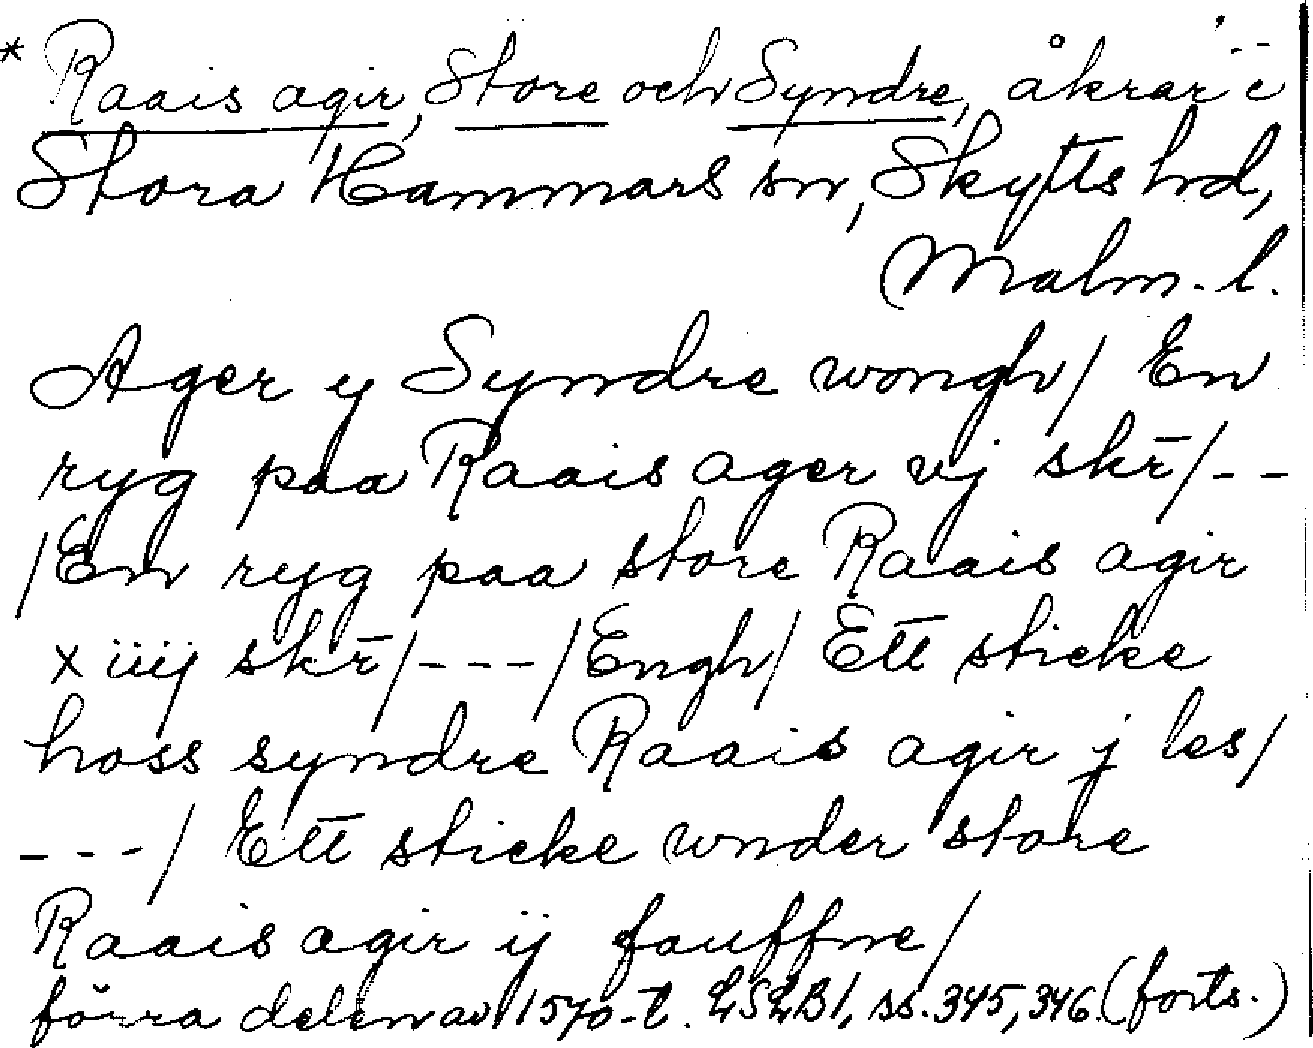 * Raais agir, Store och Syndre, åkrar i
Stora Hammars sn, Skytts hd,
Malm. l.
Ager y Syndre wongh/ En
ryg paa Raais ager vj skr̄/ - -
/En ryg paa store Raais agir
x iiij skr̄/ - - - /Engh/ Ett sticke
hoss syndre Raais agir j les/
- - - / Ett sticke wnder store
Raais agir ij fauffne/
förra delen av 1570-t. LSLB1, ss. 345, 346. (forts.)